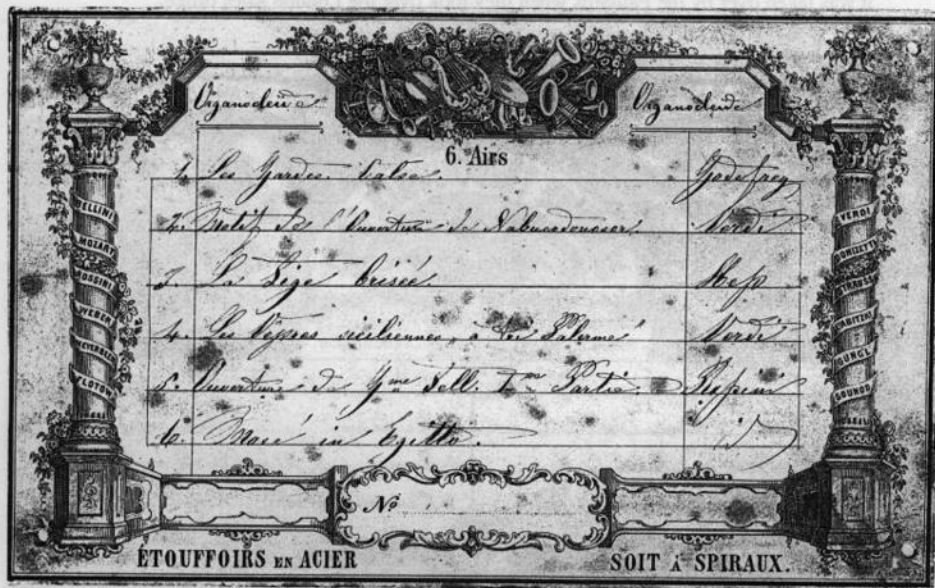 Organocleide Organocleide
6. Airs
1. Les Gardes. Valse. Godefrey
2. Motif de l'Ouverture de Nabucodonosor. Verdi
3. La Tige brisée. Hess
4. Les Vêpres siciliennes, "à toi Palerme" Verdi
5. Ouverture de Gme Tell. 1re Partie. Rossini
6. Mosé in Egitto. id
BELLINI
MOZART
ROSSINI
WEBER
MEYERBEER
FLOTOW
VERDI
DONIZETTI
STRAUSS
LABITZKI
GUNGL
GOUNOD
No
ÉTOUFFOIRS EN ACIER SOIT À SPIRAUX.